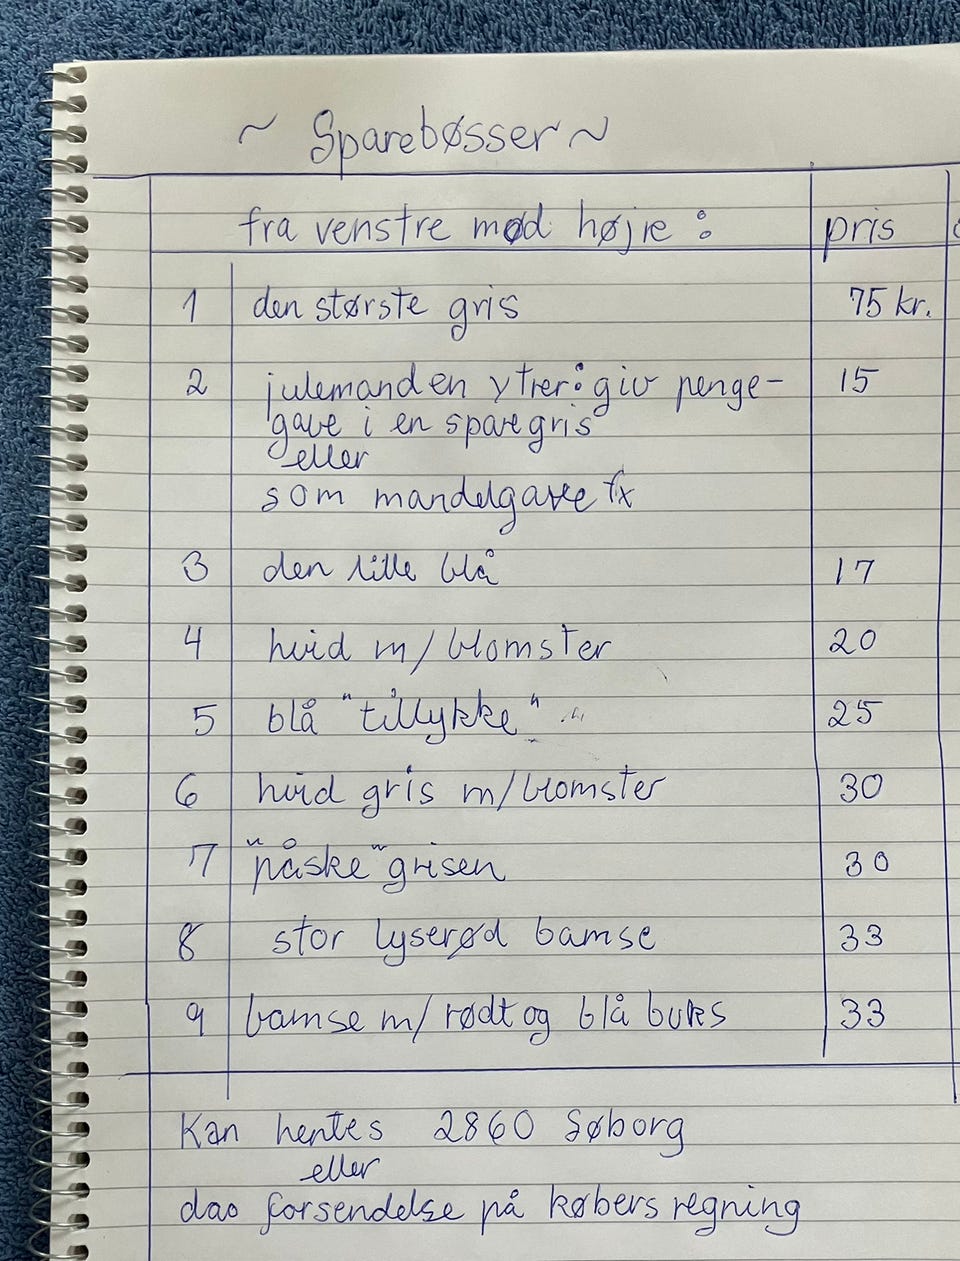 ~ Sparebøsser ~
fra venstre mød højre : pris
1 den største gris 75 kr.
2 julemanden ytrer: giv penge- 15
gave i en sparegris
eller
som mandelgave fx
3 den lille blå 17
4 hvid m/ blomster 20
5 blå "tillykke" 25
6 hvid gris m/ blomster 30
7 "påske" grisen 30
8 stor lyserød bamse 33
9 bamse m/ rødt og blå buks 33
Kan hentes 2860 Søborg
eller
dao forsendelse på købers regning